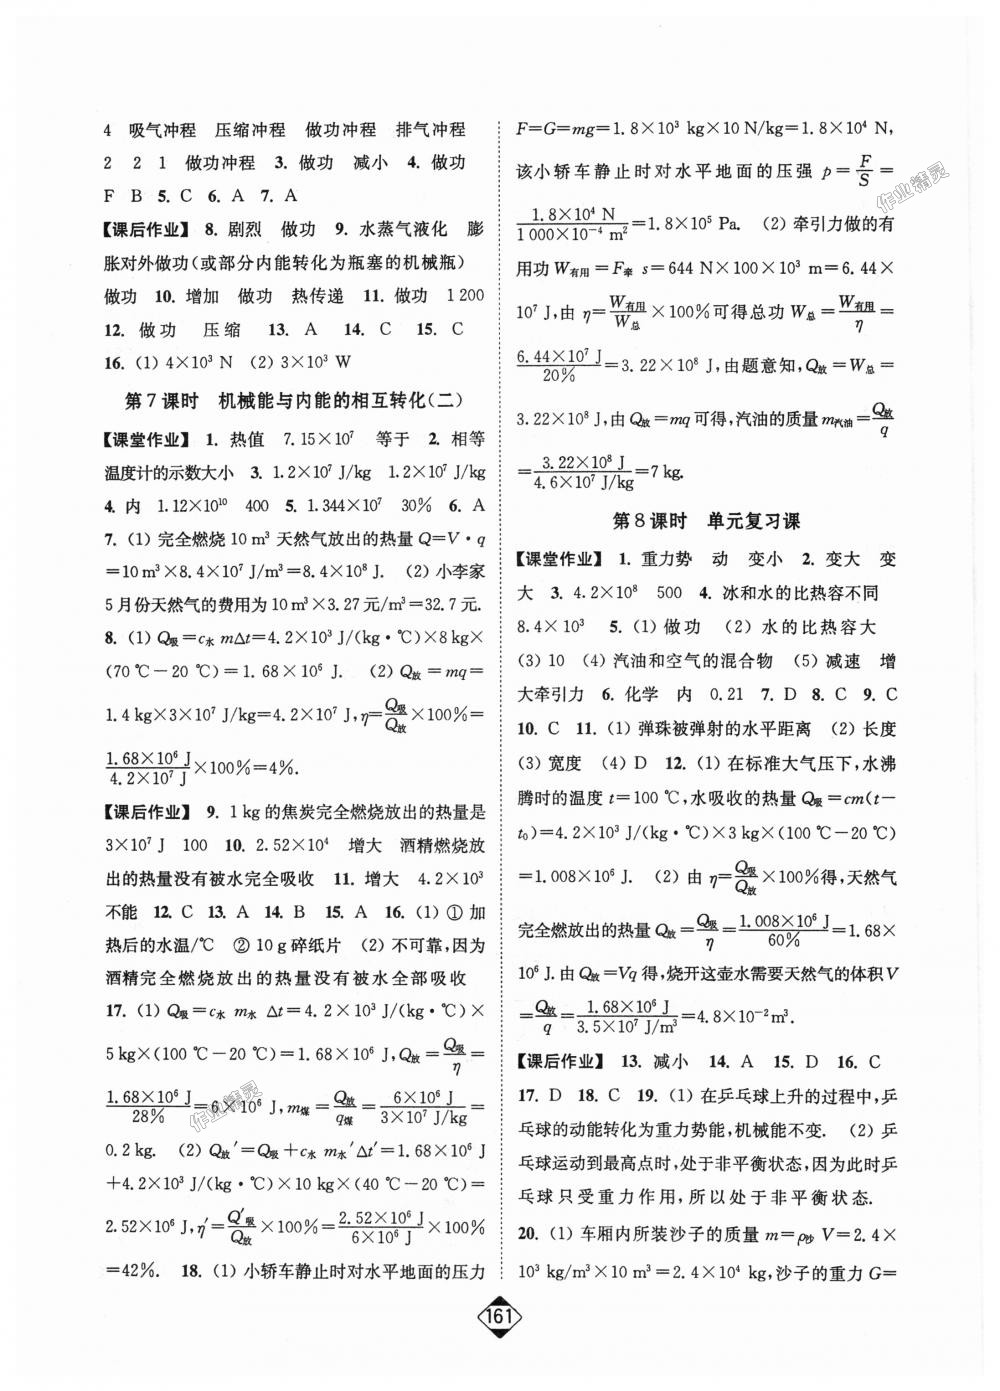 4 吸气冲程 压缩冲程 做功冲程 排气冲程
2 2 1 做功冲程 3. 做功 减小 4. 做功
F B 5. C 6. A 7. A
【课后作业】 8. 剧烈 做功 9. 水蒸气液化 膨
胀对外做功(或部分内能转化为瓶塞的机械瓶)
做功 10. 增加 做功 热传递 11. 做功 1 200
12. 做功 压缩 13. A 14. C 15. C
16. (1) 4×10³ N (2) 3×10³ W
第 7 课时 机械能与内能的相互转化(二)
【课堂作业】 1. 热值 7.15×10⁷ 等于 2. 相等
温度计的示数大小 3. 1.2×10⁷ J/kg 1.2×10⁷ J/kg
4. 内 1.12×10¹⁰ 400 5. 1.344×10⁷ 30% 6. A
7. (1) 完全燃烧 10 m³ 天然气放出的热量 Q=V·q
=10 m³×8.4×10⁷ J/m³=8.4×10⁸ J. (2) 小李家
5 月份天然气的费用为 10 m³×3.27 元/m³=32.7 元.
8. (1) Q吸=c水 mΔt=4.2×10³ J/(kg·℃)×8 kg×
(70 ℃-20 ℃)=1.68×10⁶ J. (2) Q放=mq=
1.4 kg×3×10⁷ J/kg=4.2×10⁷ J,η=Q吸/Q放×100%=
1.68×10⁶ J/4.2×10⁷ J×100%=4%.
【课后作业】 9. 1 kg 的焦炭完全燃烧放出的热量是
3×10⁷ J 100 10. 2.52×10⁴ 增大 酒精燃烧放
出的热量没有被水完全吸收 11. 增大 4.2×10³
不能 12. C 13. A 14. B 15. A 16. (1) ①加
热后的水温/℃ ② 10 g 碎纸片 (2) 不可靠,因为
酒精完全燃烧放出的热量没有被水全部吸收
17. (1) Q吸=c水 m水 Δt=4.2×10³ J/(kg·℃)×
5 kg×(100 ℃-20 ℃)=1.68×10⁶ J,Q放=Q吸/η=
1.68×10⁶ J/28%=6×10⁶ J,m煤=Q放/q煤=6×10⁶ J/3×10⁷ J/kg=
0.2 kg. (2) Q放′=Q吸+c水 m水′Δt′=1.68×10⁶ J
+4.2×10³ J/(kg·℃)×10 kg×(40 ℃-20 ℃)=
2.52×10⁶ J,η′=Q′吸/Q放×100%=2.52×10⁶ J/6×10⁶ J×100%
=42%. 18. (1) 小轿车静止时对水平地面的压力
F=G=mg=1.8×10³ kg×10 N/kg=1.8×10⁴ N,
该小轿车静止时对水平地面的压强 p=F/S=
1.8×10⁴ N/1 000×10⁻⁴ m²=1.8×10⁵ Pa. (2) 牵引力做的有
用功 W有用=F牵 s=644 N×100×10³ m=6.44×
10⁷ J,由 η=W有用/W总×100%可得总功 W总=W有用/η=
6.44×10⁷ J/20%=3.22×10⁸ J,由题意知,Q放=W总=
3.22×10⁸ J,由 Q放=mq 可得,汽油的质量 m汽油=Q放/q
=3.22×10⁸ J/4.6×10⁷ J/kg=7 kg.
第 8 课时 单元复习课
【课堂作业】 1. 重力势 动 变小 2. 变大 变
大 3. 4.2×10⁸ 500 4. 冰和水的比热容不同
8.4×10³ 5. (1) 做功 (2) 水的比热容大
(3) 10 (4) 汽油和空气的混合物 (5) 减速 增
大牵引力 6. 化学 内 0.21 7. D 8. C 9. C
10. C 11. (1) 弹珠被弹射的水平距离 (2) 长度
(3) 宽度 (4) D 12. (1) 在标准大气压下,水沸
腾时的温度 t=100 ℃,水吸收的热量 Q吸=cm(t-
t₀)=4.2×10³ J/(kg·℃)×3 kg×(100 ℃-20 ℃)
=1.008×10⁶ J. (2) 由 η=Q吸/Q放×100%得,天然气
完全燃烧放出的热量 Q放=Q吸/η=1.008×10⁶ J/60%=1.68×
10⁶ J.由 Q放=Vq 得,烧开这壶水需要天然气的体积 V
=Q放/q=1.68×10⁶ J/3.5×10⁷ J/m³=4.8×10⁻² m³.
【课后作业】 13. 减小 14. A 15. D 16. C
17. D 18. C 19. (1) 在乒乓球上升的过程中,乒
乓球的动能转化为重力势能,机械能不变. (2) 乒
乓球运动到最高点时,处于非平衡状态,因为此时乒
乓球只受重力作用,所以处于非平衡状态.
20. (1) 车厢内所装沙子的质量 m=ρ沙 V=2.4×
10³ kg/m³×10 m³=2.4×10⁴ kg,沙子的重力 G=
161
作业精灵
作业精灵